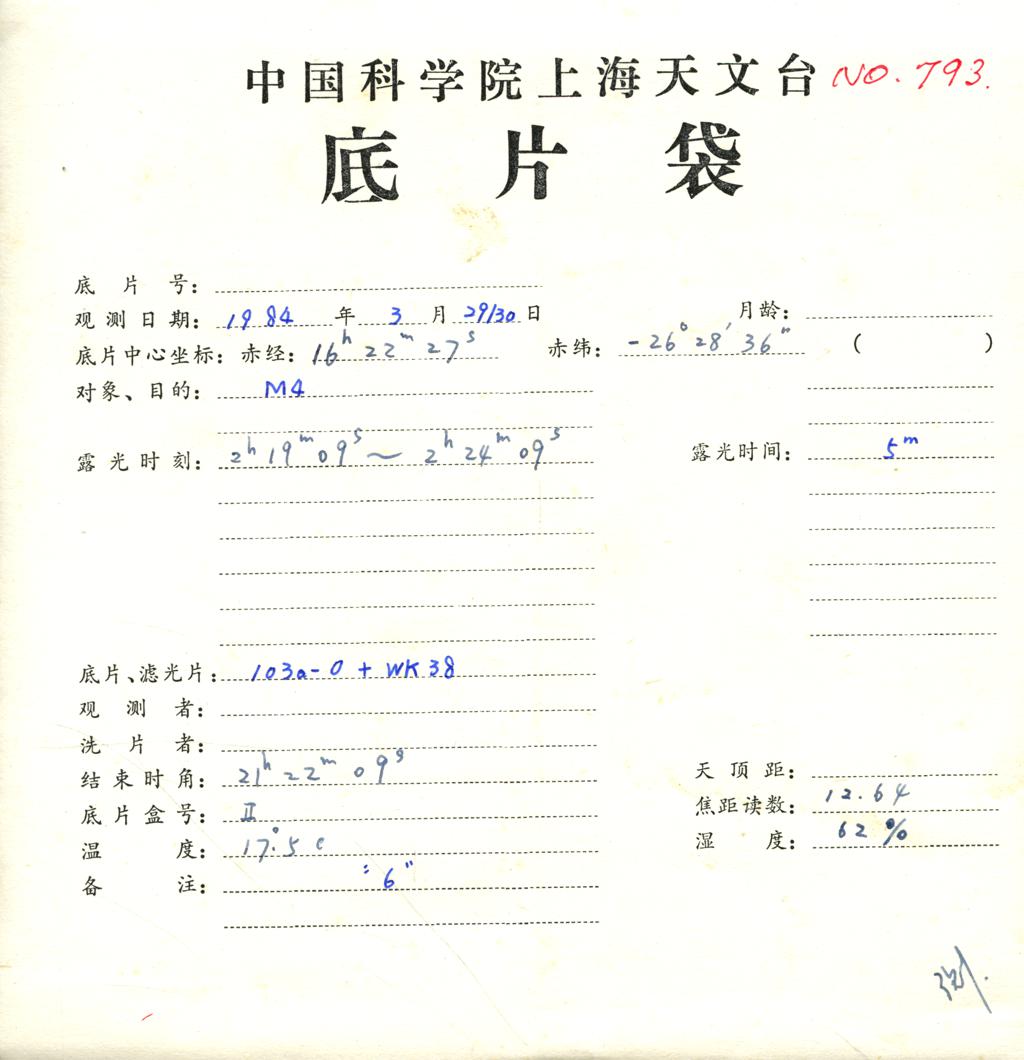 中国科学院上海天文台 NO. 793.
底片袋
底片号：
观测日期：1984年3月29/30日 月龄：
底片中心坐标：赤经：16h 22m 27s 赤纬：-26° 28′ 36″ ( )
对象、目的：M4
露光时刻：2h 19m 09s ～ 2h 24m 09s 露光时间：5m
底片、滤光片：103a-O + WK38
观测者：
洗片者：
结束时角：21h 22m 09s 天顶距：
底片盒号：II 焦距读数：12.64
温度：17.°5 C 湿度：62 %
备注：